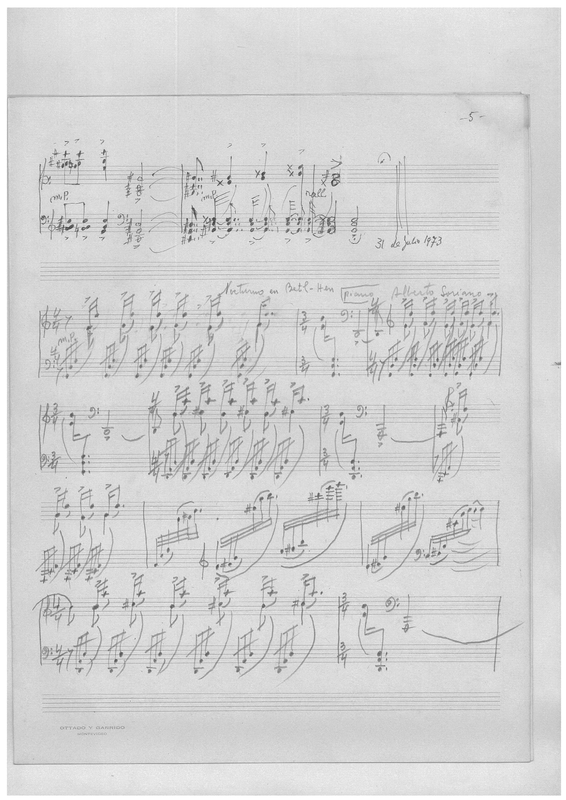 -5-
m.p.
m.p.
rall
31 de Julio 1973
Nocturno en Beth-Hen piano Alberto Soriano
m.p.
OTTADO Y GARRIDO
MONTEVIDEO